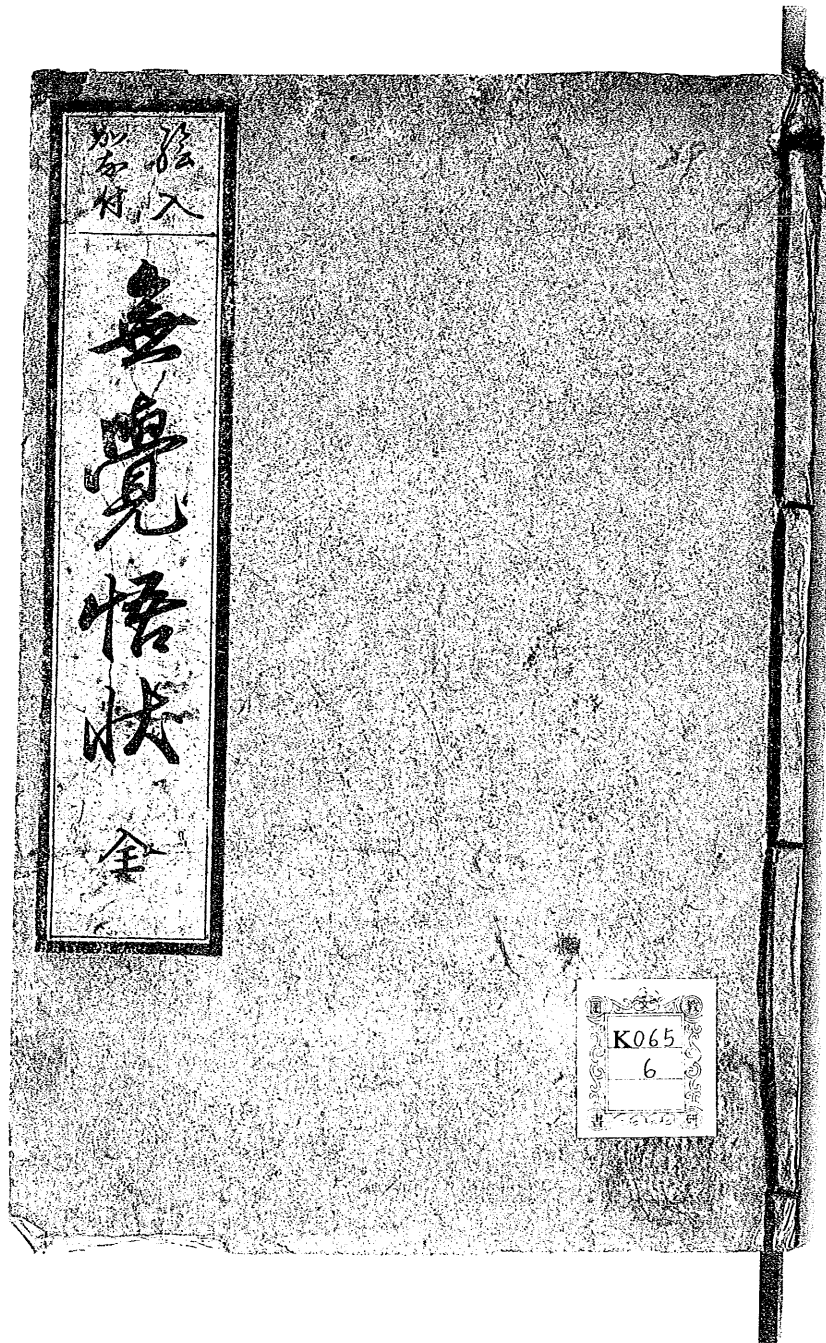 絵入
かな付
無覺悟状
全
K065
6